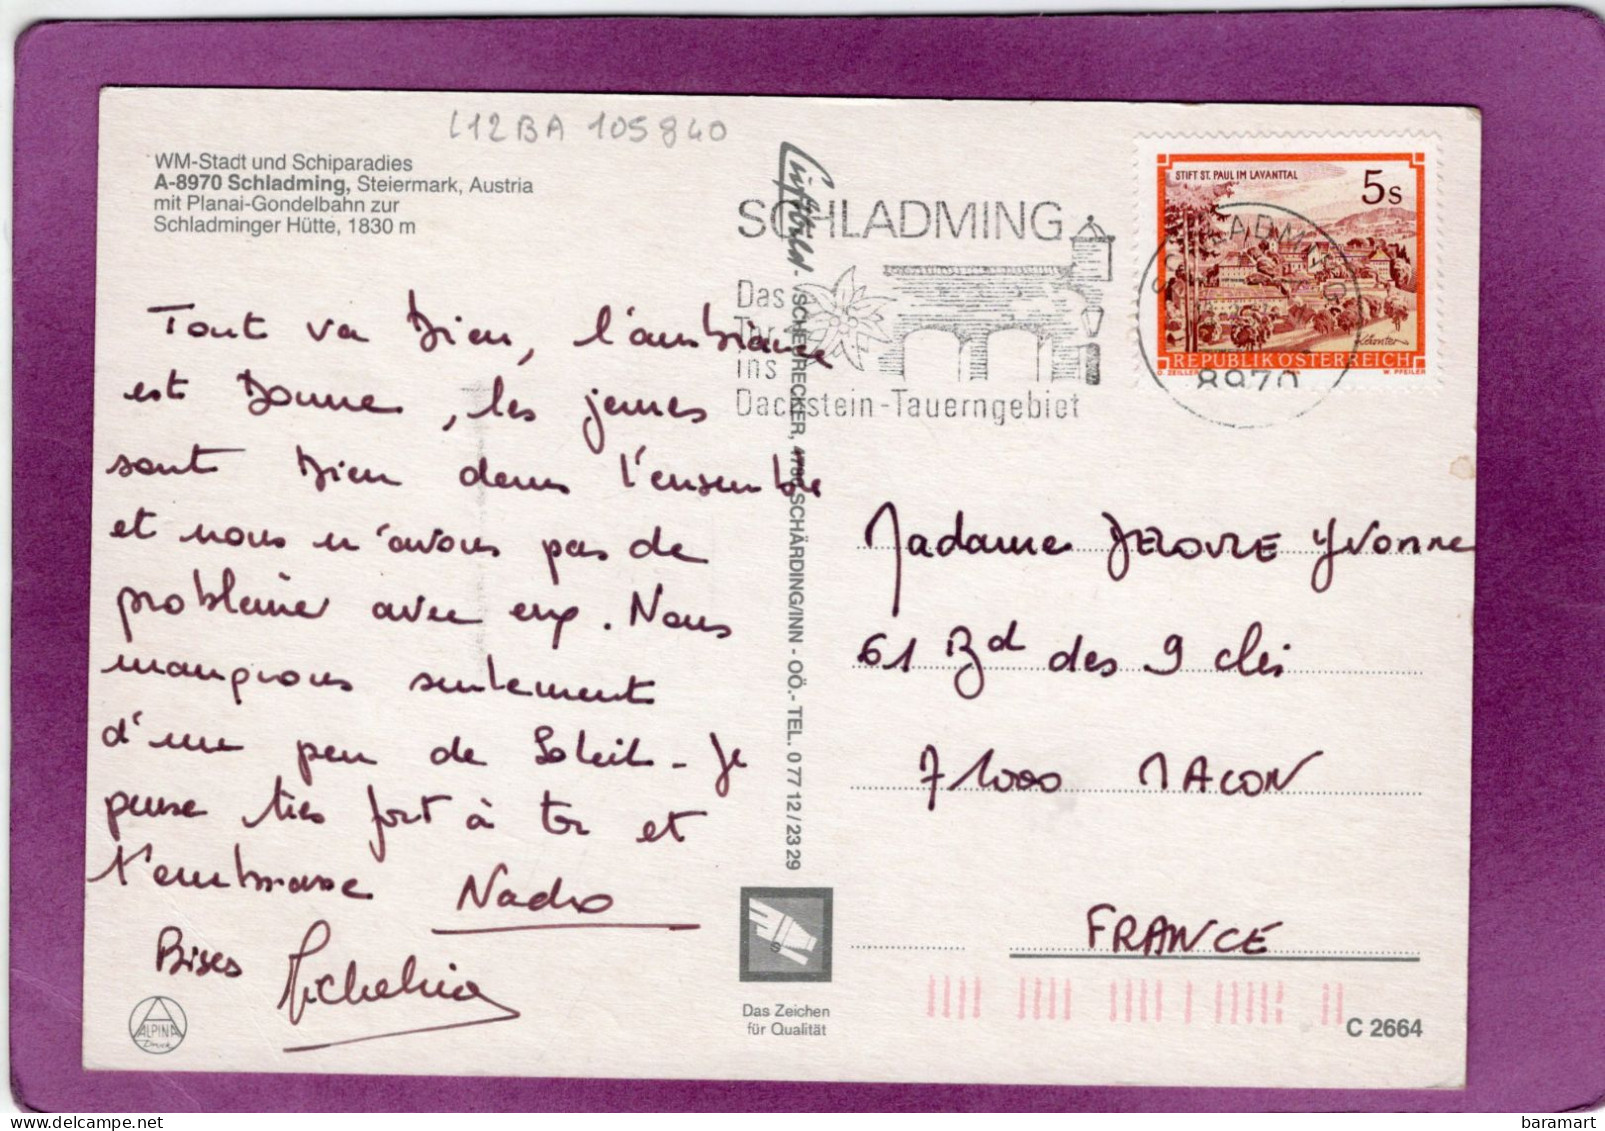 L12BA 105840
WM-Stadt und Schiparadies
A-8970 Schladming, Steiermark, Austria
mit Planai-Gondelbahn zur
Schladminger Hütte, 1830 m
Tout va bien, l'ambiance
est bonne, les jeunes
sont bien dans l'ensemble
et nous n'avons pas de
problème avec eux. Nous
manquons seulement
d'un peu de soleil - Je
pense très fort à toi et
t'embrasse
Bises
ALPINA
Druck
Luftbild - SCHEURECKER, 4780 SCHÄRDING/INN - OÖ.- TEL. 0 77 12 / 23 29
Das Zeichen
für Qualität
SCHLADMING
Das
Tor
ins
Dachstein-Tauerngebiet
STIFT ST. PAUL IM LAVANTTAL
5s
REPUBLIK ÖSTERREICH
O. ZEILLER
W. PFEILER
SCHLADMING
8970
Madame Yvonne
61 Bd des 9 clés
71000 MACON
FRANCE
C 2664
baramart